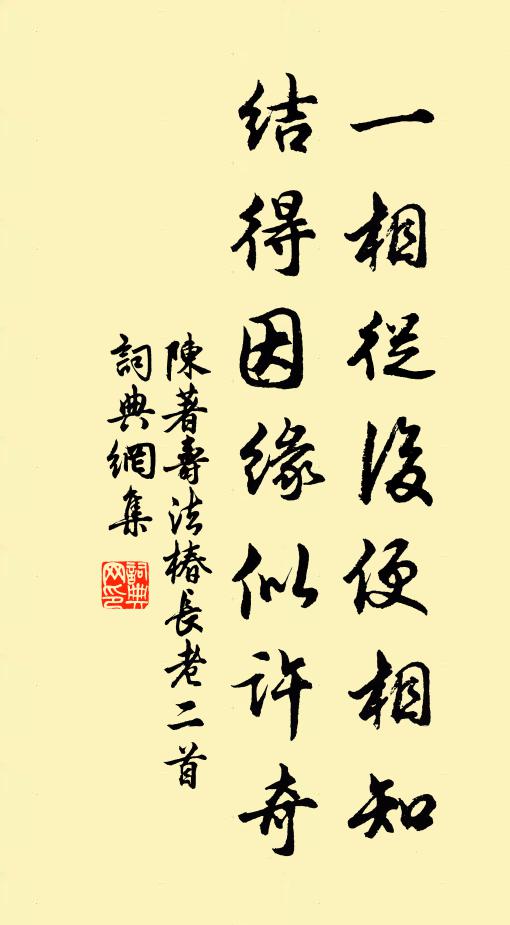 一相從後便相知
結得因緣似許奇
陳著壽法椿長老二首
詞典網集
詞典網印